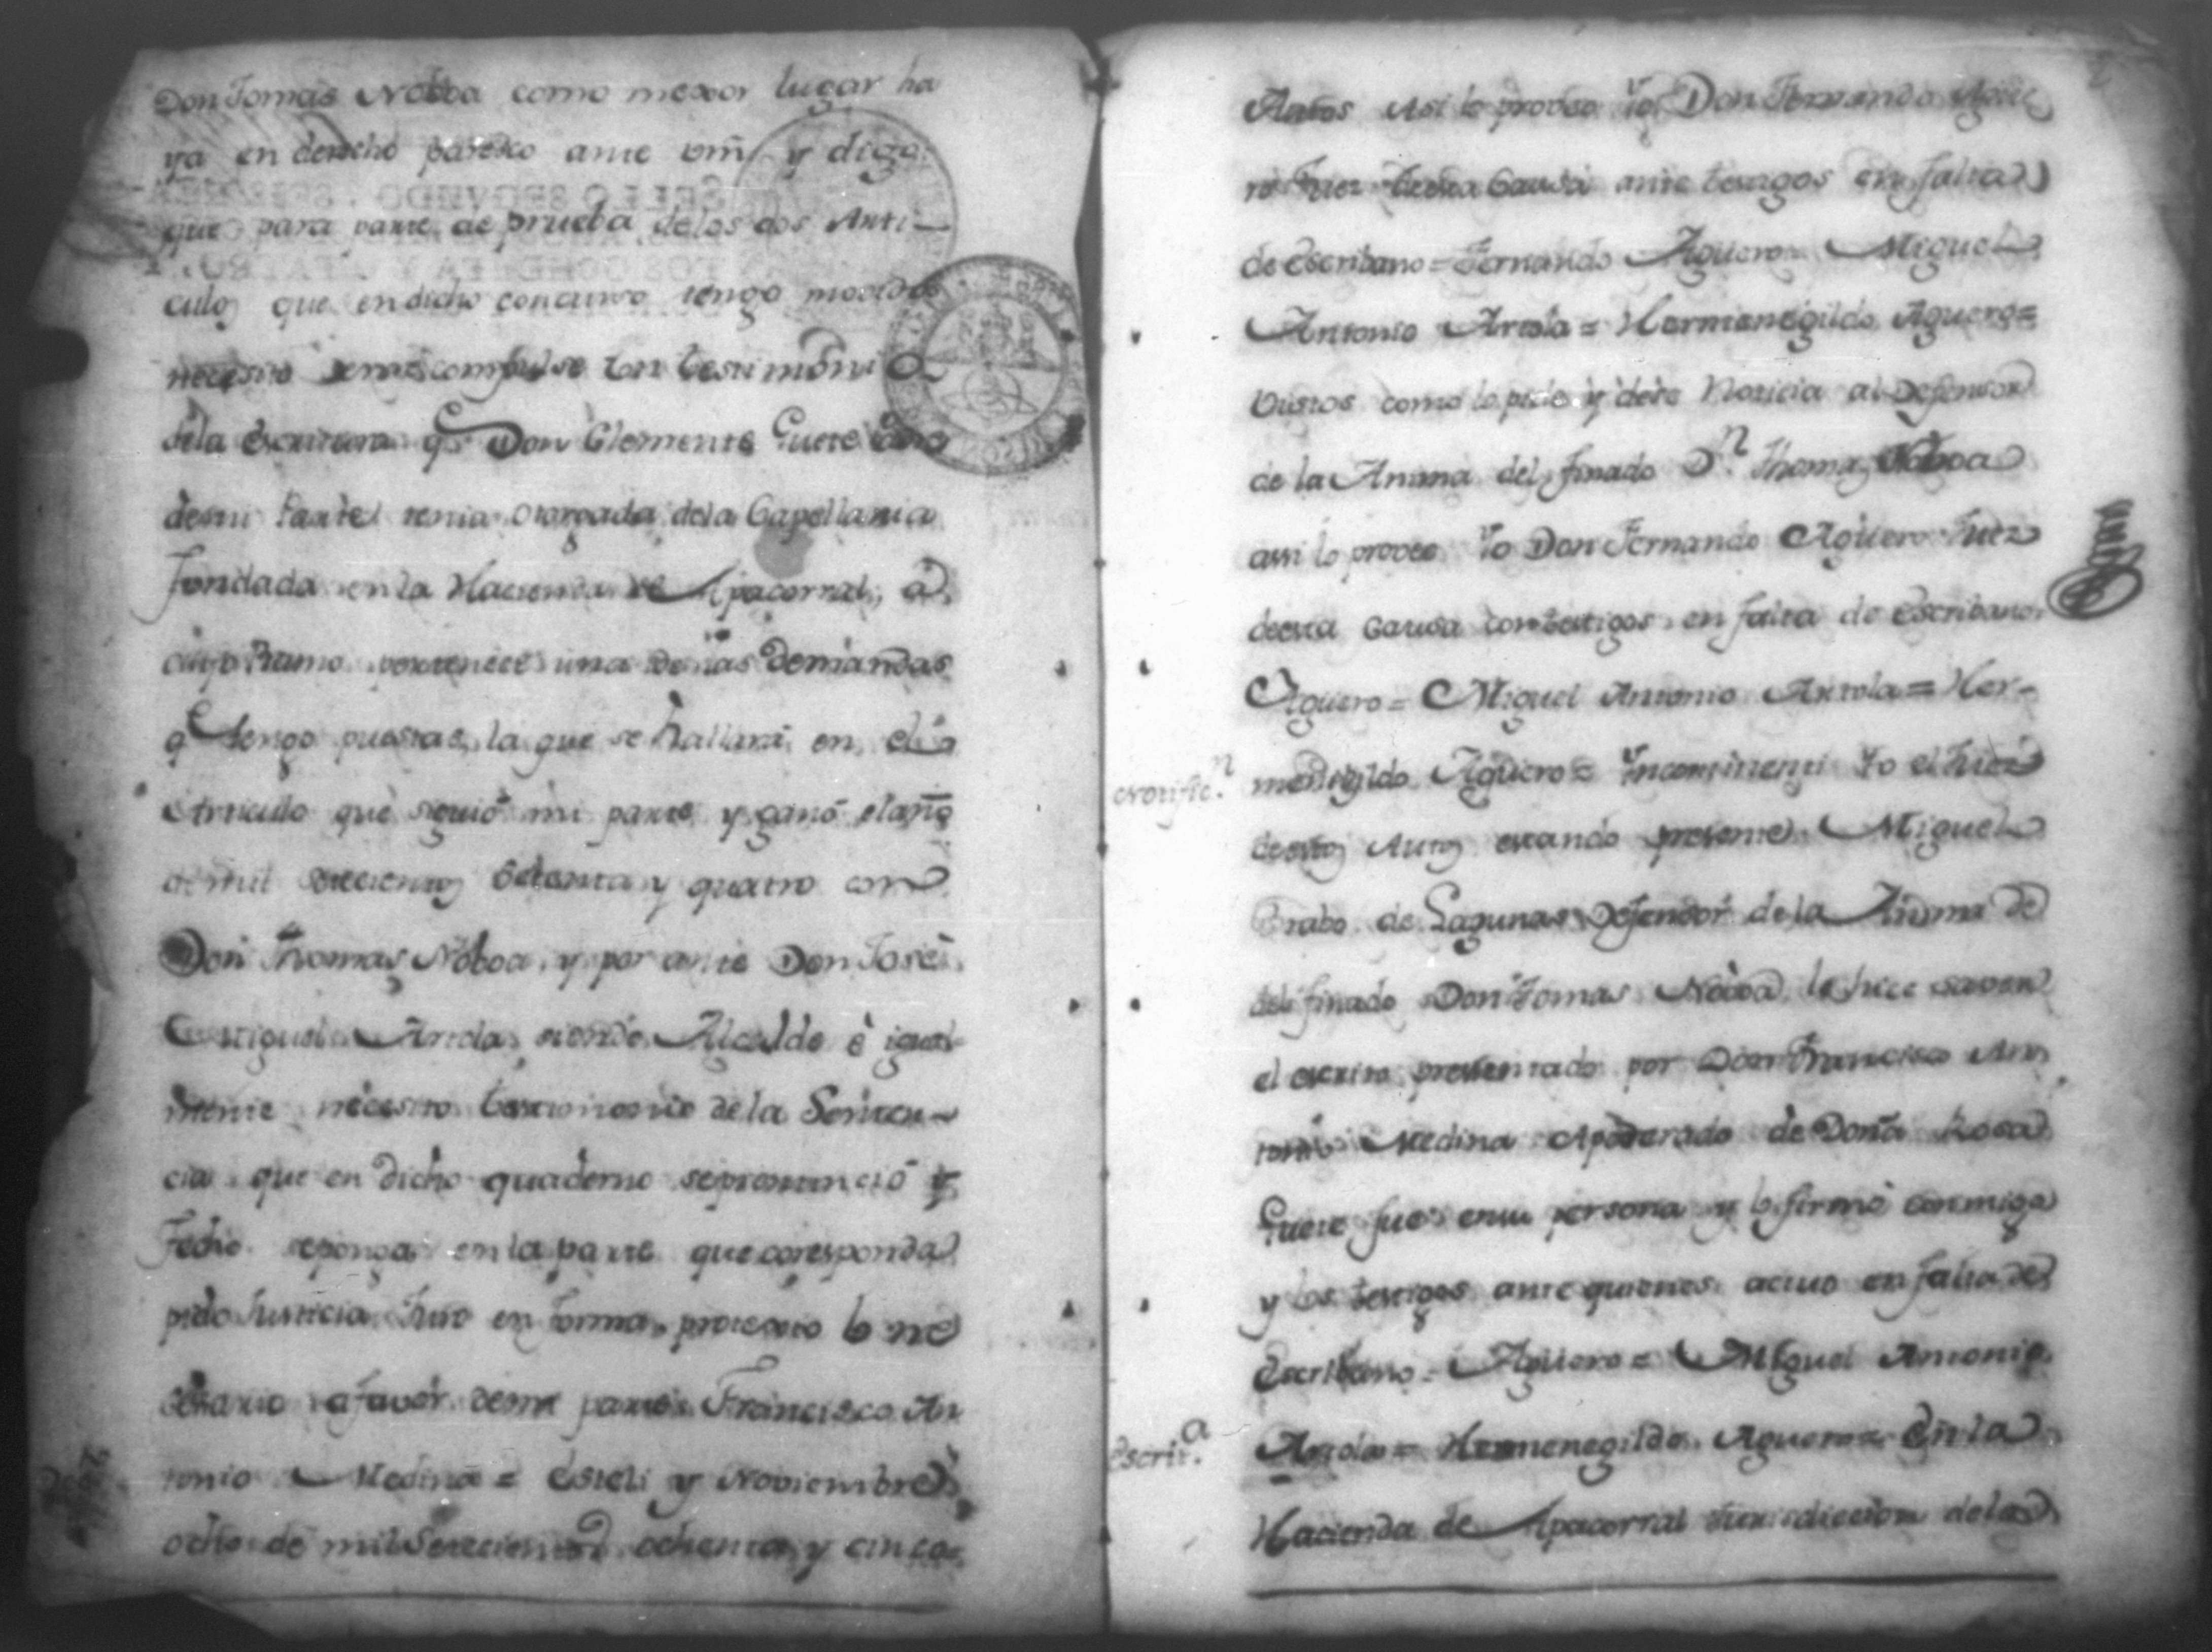 Don Tomás Noboa como mexor lugar ha
ya en derecho paresco ante vm. y digo
que para parte de prueba de los dos Arti-
culos que en dicho concurso tengo movidos
necesito se me compulse un testimonio
dela Escritura q.e Don Clemente Guete
de mi Parte tenia otorgada dela Capellania
fondada en la Hacienda de Apacorral, á
cuyo Ramo pertenece una de las Demandas
q.e tengo puestas, la que se hallará en el
Articulo que siguió mi parte y ganó el año
de mil setecientos ochenta y quatro con
Don Thomas Noboa, y por ante Don José
Miguel Artola, siendo Alcalde é igual-
mente necesito testimonio de la Senten-
cia que en dicho quaderno se pronunció y
Fecho se ponga en la parte que coresponda
pido Justicia Juro en forma, protexto lo ne
sesario a favor de mi parte Francisco An
tonio Medina = Esteli y Noviembre
ocho de mil Setecientos ochenta y cinco
Autos Asi lo proveo Yo Don Fernando Ague
ro Juez desta Causa ante testigos en falta
de Escribano = Fernando Aguero = Miguel
Antonio Artola = Hermenegildo Aguero =
Vistos como lo pide y dése Noticia al Defensor
de la Anima del finado D.n Thomas Noboa
assi lo proveo Yo Don Fernando Aguero Juez
de esta Causa con testigos en falta de Escribano
Aguero = Miguel Antonio Artola = Her-
Notific.n
menegildo Aguero = Yncontinenti Yo el Juez
destos Autos estando presente Miguel
Brabo de Lagunas Defensor de la Anima de
del finado Don Tomas Noboa le hice saver
el escrito presentado por Don Francisco An
tonio Medina Apoderado de Doña Rosa
Guete fue en su persona y lo firmó conmigo
y los testigos ante quienes actuo en falta de
Escribano = Aguero = Miguel Antonio
Escrit.a
Artola = Hermenegildo Aguero = En la
Hacienda de Apacorral Jurisdiccion de la